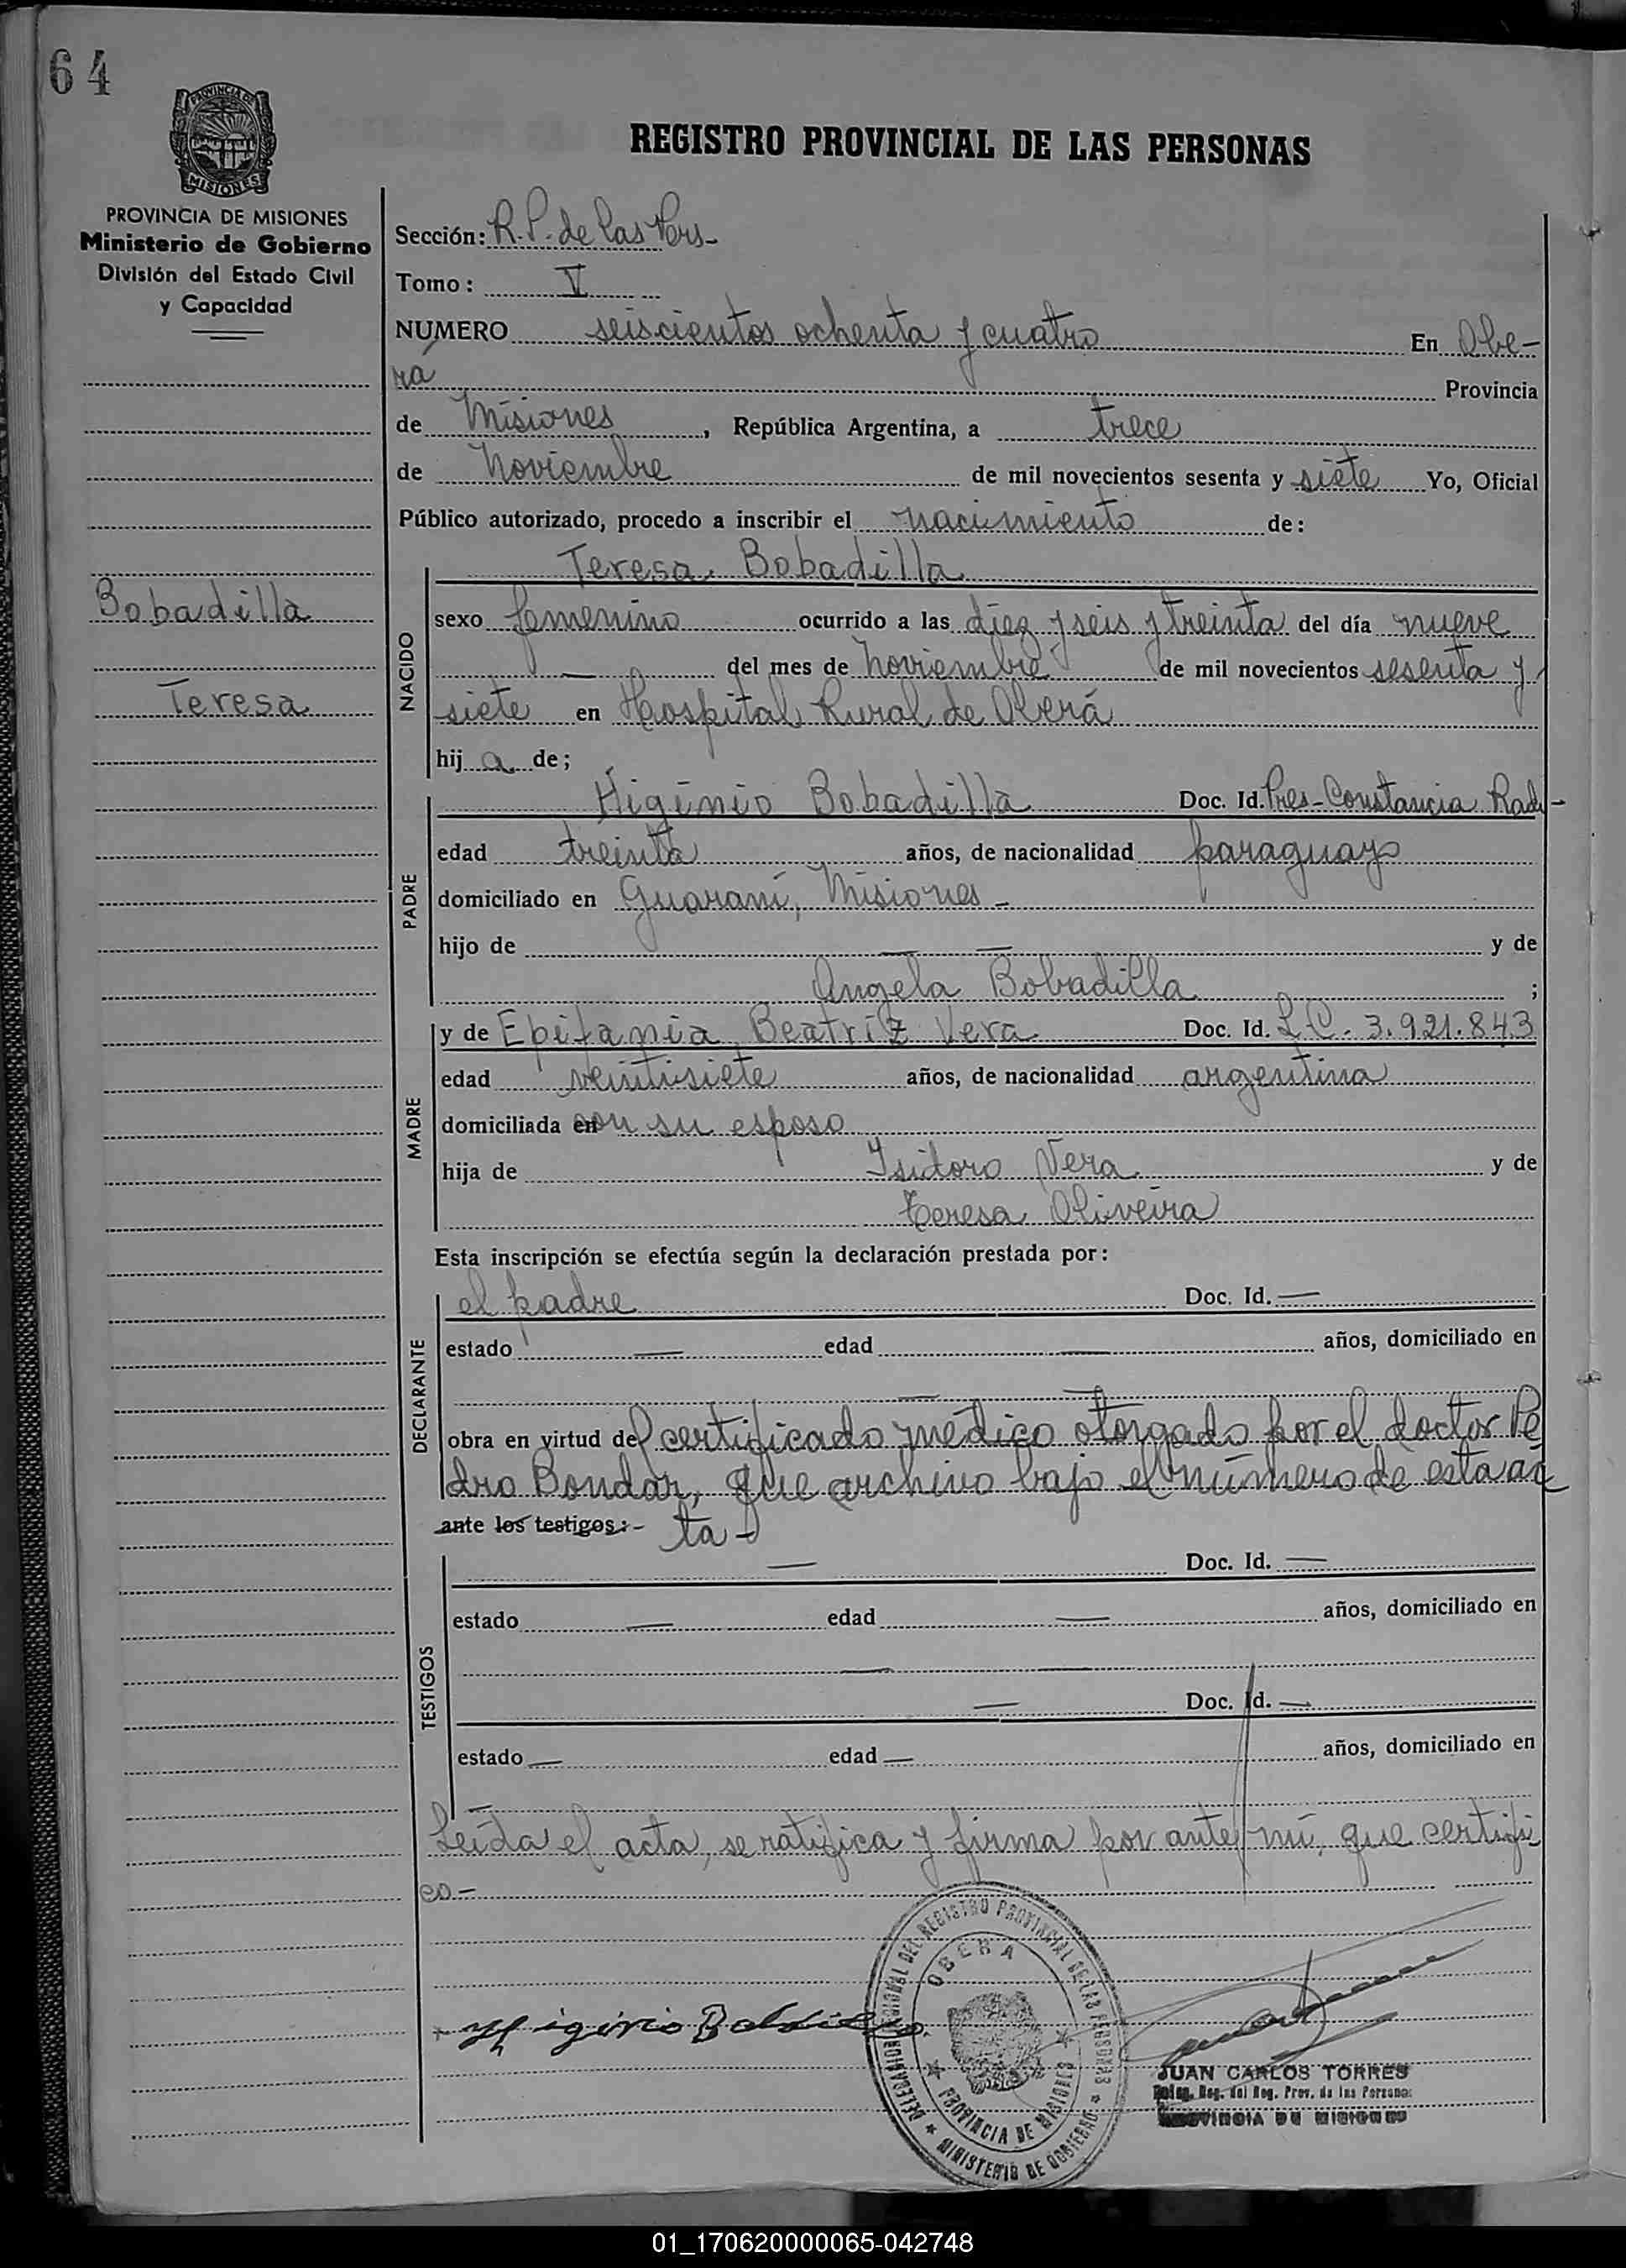 64
PROVINCIA DE
MISIONES
REGISTRO PROVINCIAL DE LAS PERSONAS
PROVINCIA DE MISIONES
Ministerio de Gobierno
División del Estado Civil
y Capacidad
Sección: R.P. de las Pers-
Tomo: V
NUMERO seiscientos ochenta y cuatro En Obe-
rá Provincia
de Misiones, República Argentina, a trece
de Noviembre de mil novecientos sesenta y siete Yo, Oficial
Público autorizado, procedo a inscribir el nacimiento de:
Teresa Bobadilla
Bobadilla
Teresa
NACIDO
sexo femenino ocurrido a las diez y seis y treinta del día nueve
— del mes de Noviembre de mil novecientos sesenta y
siete en Hospital Rural de Oberá
hij a de;
PADRE
Higinio Bobadilla Doc. Id. Pres-Constancia Rad-
edad treinta años, de nacionalidad paraguayo
domiciliado en Guaraní, Misiones -
hijo de — — y de
Angela Bobadilla ;
MADRE
y de Epifania Beatríz Vera Doc. Id. L.C. 3.921.843
edad veintisiete años, de nacionalidad argentina
domiciliada en con su esposo
hija de Isidoro Vera y de
Teresa Oliveira
Esta inscripción se efectúa según la declaración prestada por:
DECLARANTE
el padre Doc. Id. —
estado — edad — años, domiciliado en
— —
obra en virtud del certificado médico otorgado por el doctor Pe
dro Bondar, que archivo bajo el número de esta ac
ante los testigos:- ta-
TESTIGOS
— Doc. Id. —
estado — edad — años, domiciliado en
— —
— Doc. Id. —
estado — edad — años, domiciliado en
—
Leída el acta, se ratifica y firma por ante mí, que certifi
co-
Higinio Bobadilla
DELEGACION REGIONAL DEL REGISTRO PROVINCIAL DE LAS PERSONAS
OBERA
PROVINCIA DE MISIONES
MINISTERIO DE GOBIERNO
JUAN CARLOS TORRES
Deleg. Reg. del Reg. Prov. de las Personas
PROVINCIA DE MISIONES
01_170620000065-042748